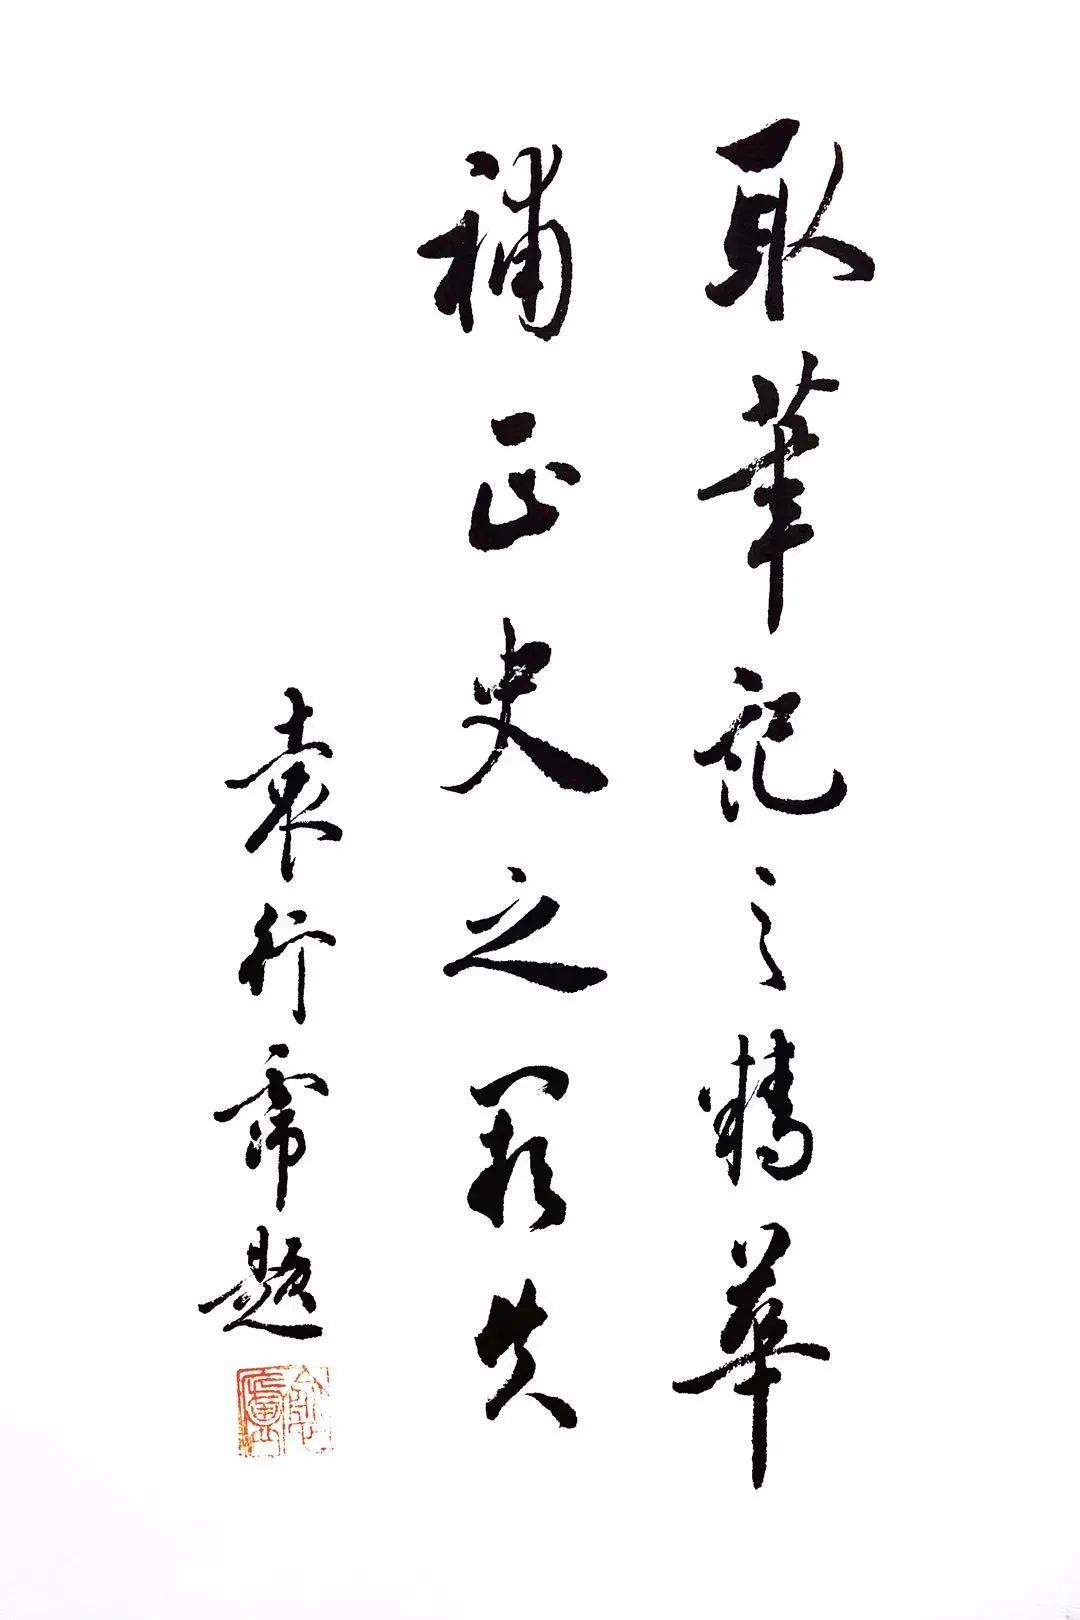 取筆記之精華
補正史之闕失
袁行霈題